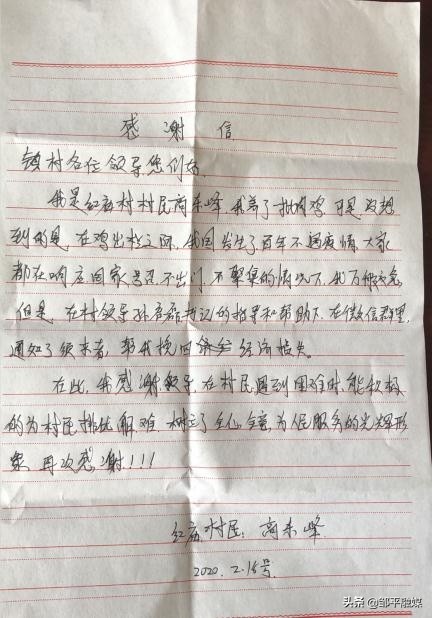 感谢信
镇村各位领导您们好.
我是红庙村村民商东峰,我养了一批肉鸡,可是没想
到的是,在鸡出栏之际,我国发生了百年不遇疫情,大家
都在响应国家号召,不出门,不聚集的情况下,我万般焦急,
但是,在村领导孙 书记的指导和帮助下,在微信群里,
通知了领来者,帮我挽回 经济损失。
在此,我感谢领导在村民遇到困难时,能积极
的为村民排忧解难,树立了全心全意为人民服务的光辉形
象,再次感谢!!!
红庙村民:商东峰
2020.2.16号.
头条@邹平融媒